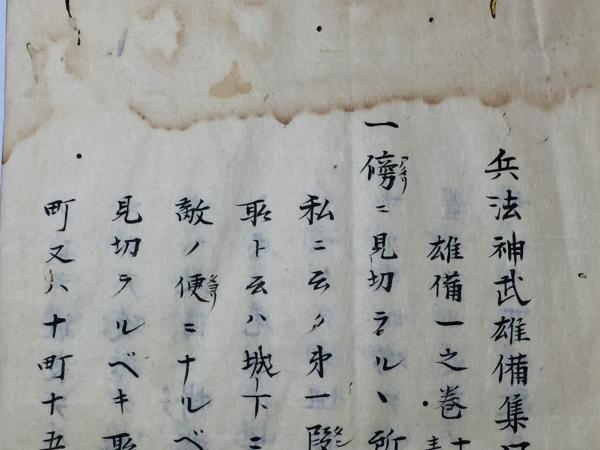 兵法神武雄備集
雄備一之巻十
一傍ニ見切ラルヽ所
私ニ云ク第一段
取ト云ハ城下ニ
敵ノ便ニナルベ
見切ラルベキ取
町又ハ十町十五